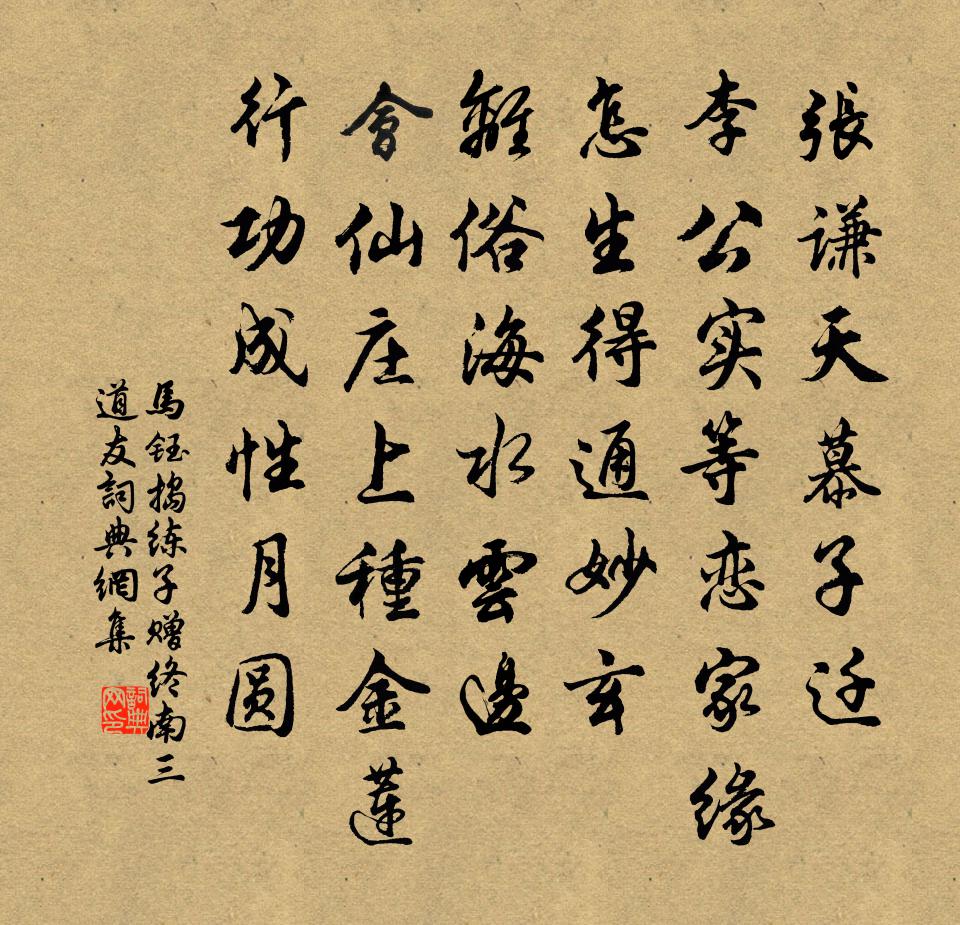 張谦天慕子迁
李公实等恋家缘
怎生得通妙玄
離俗海水雲邊
會仙庄上種金蓮
行功成性月圆
馬鈺搗练子赠终南三
道友詞典網集
詞典网印